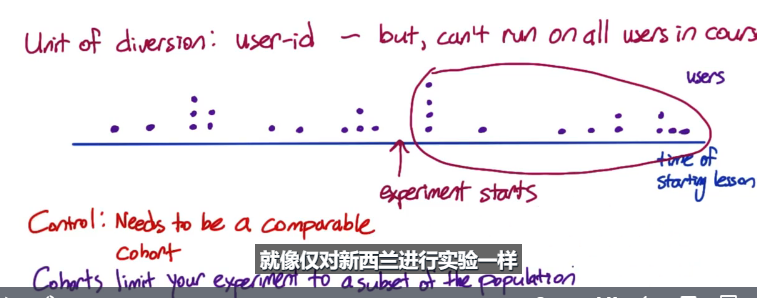 Unit of diversion: user-id – but, can't run on all users in cours
users
experiment starts
time of
starting lesson
Control: Needs to be a comparable
cohort
就像仅对新西兰进行实验一样
Cohorts limit your experiment to a subset of the population